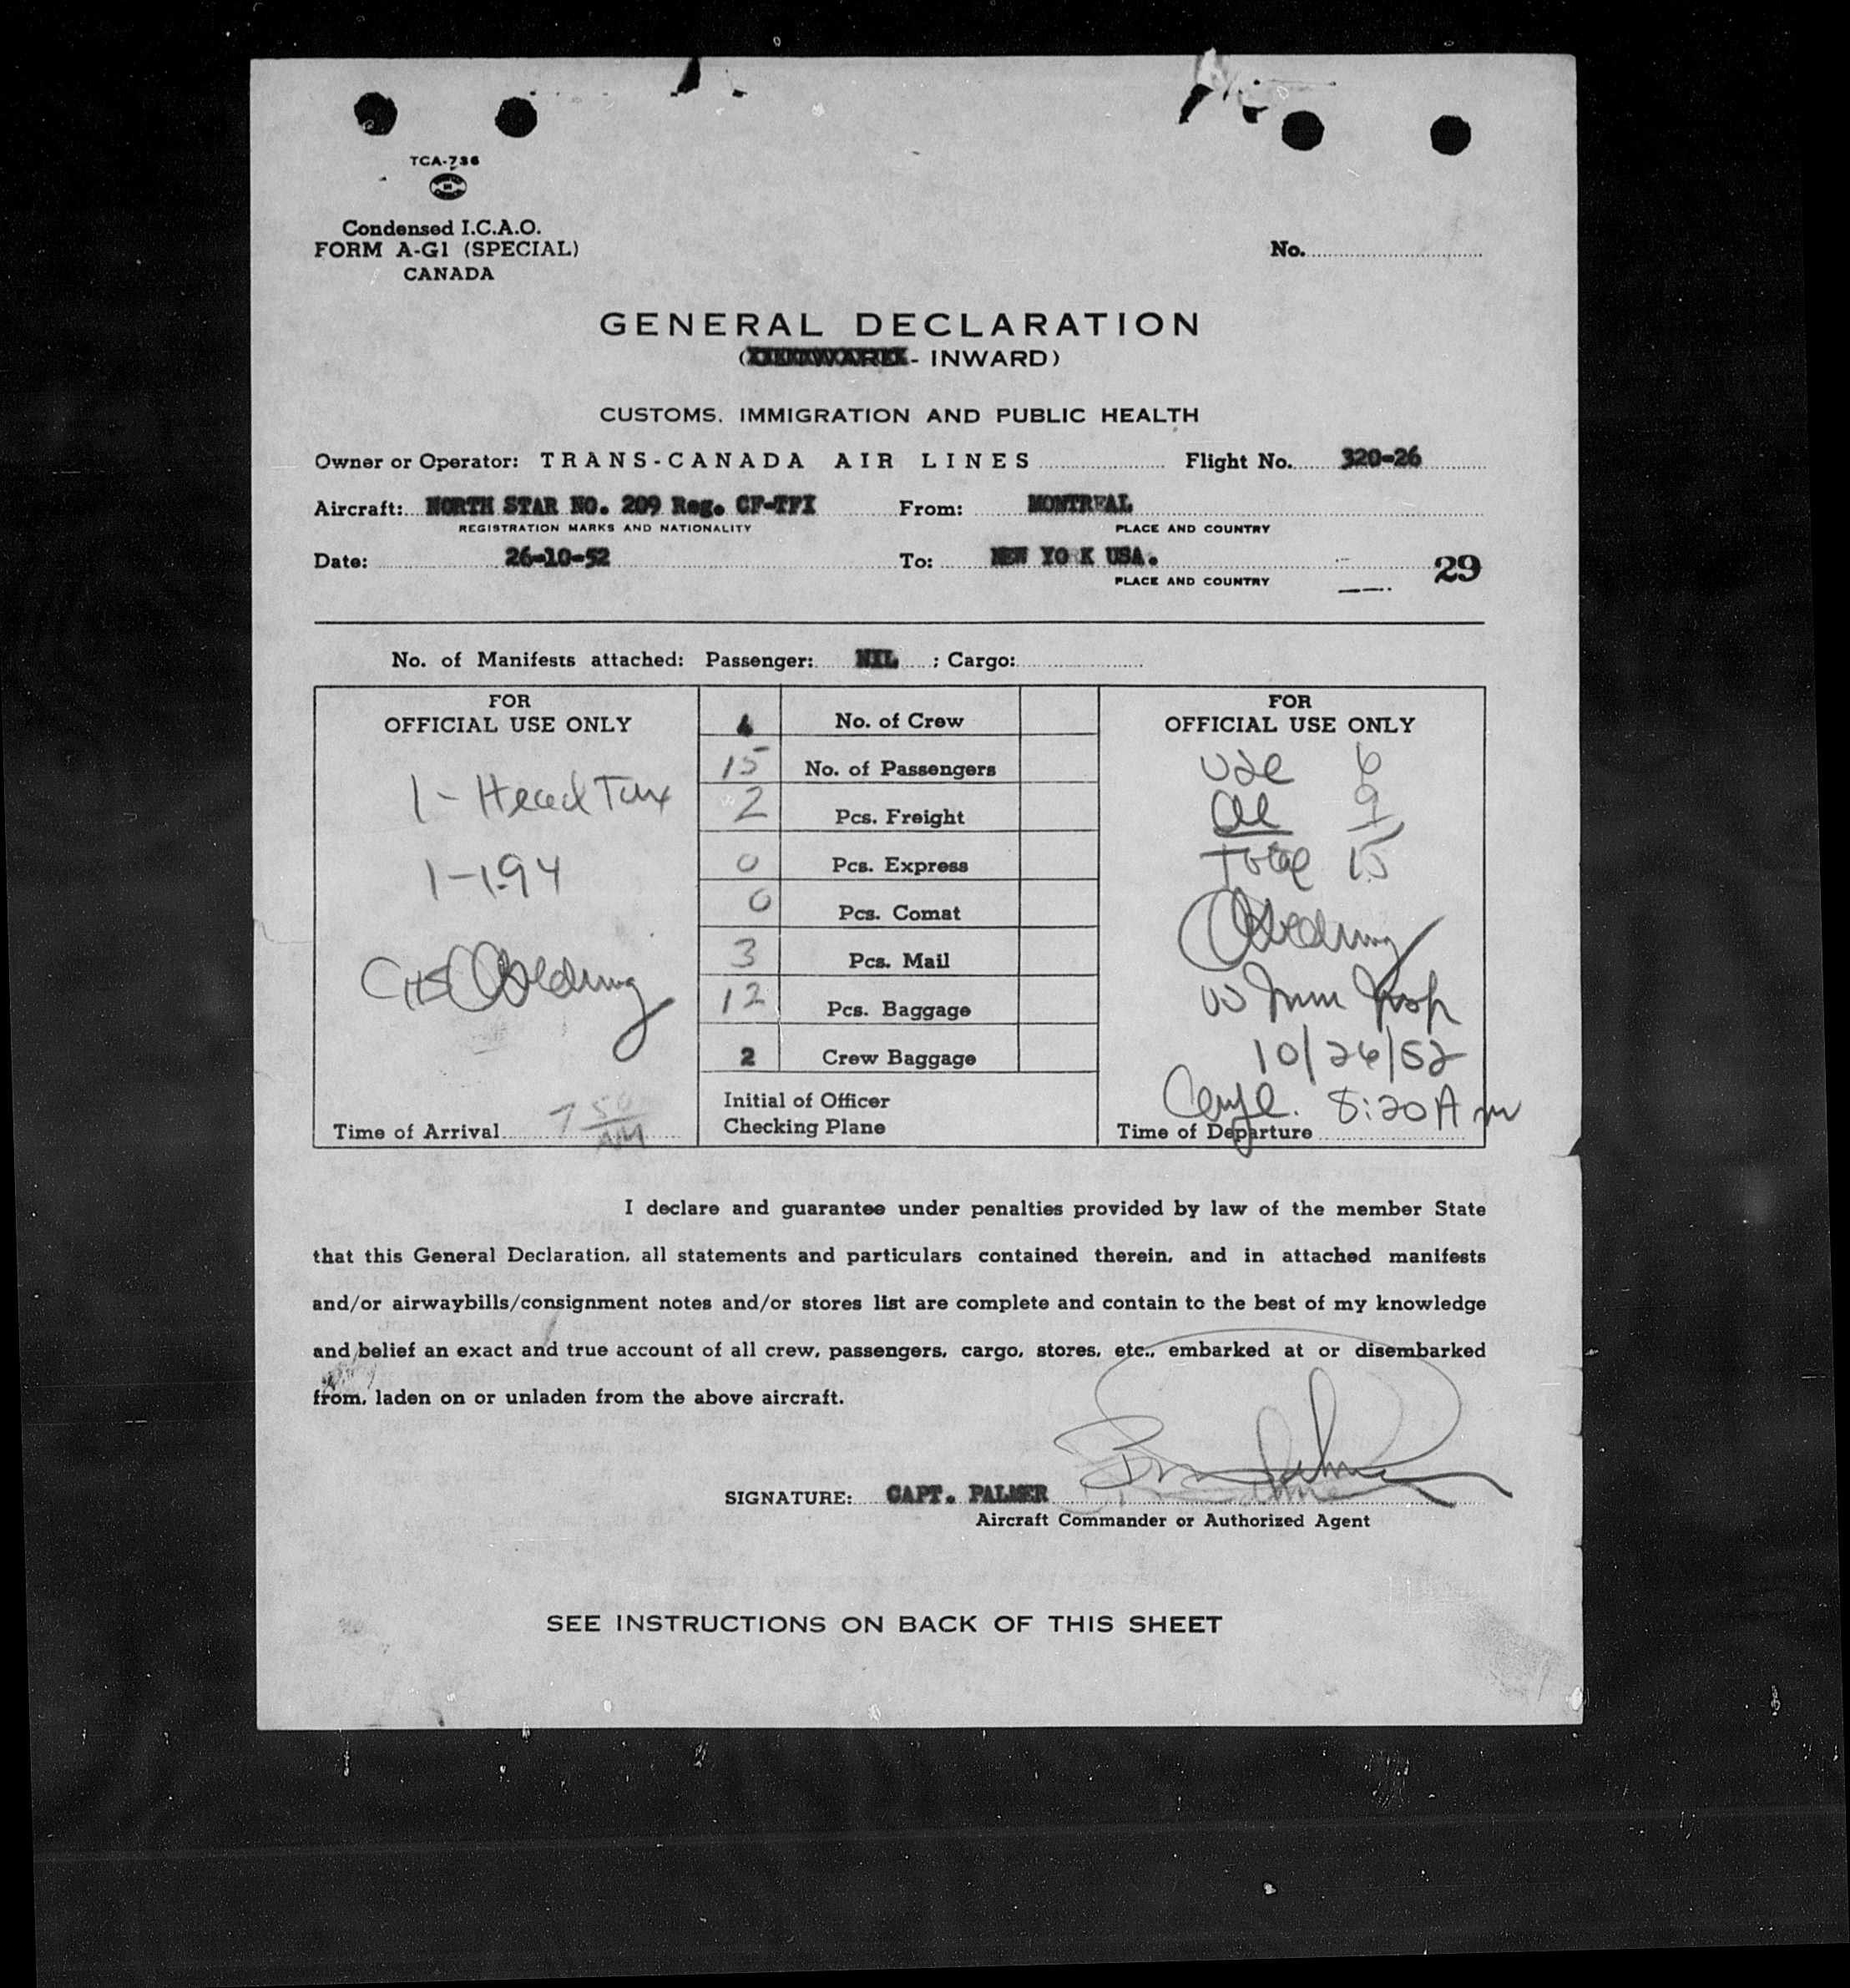 TCA-736
Condensed I.C.A.O.
FORM A-G1 (SPECIAL)
CANADA
No.
GENERAL DECLARATION
- INWARD)
CUSTOMS, IMMIGRATION AND PUBLIC HEALTH
Owner or Operator: TRANS-CANADA AIR LINES Flight No. 320-26
Aircraft: NORTH STAR NO. 209 Reg. CF-TFI From: MONTREAL
REGISTRATION MARKS AND NATIONALITY PLACE AND COUNTRY
Date: 26-10-52 To: NEW YO K USA. 29
PLACE AND COUNTRY
No. of Manifests attached: Passenger: NIL ; Cargo:
FOR
OFFICIAL USE ONLY
1 - Head Tax
1-194
Time of Arrival 7 50 AM
No. of Crew
15 No. of Passengers
2 Pcs. Freight
0 Pcs. Express
0 Pcs. Comat
3 Pcs. Mail
12 Pcs. Baggage
2 Crew Baggage
Initial of Officer
Checking Plane
FOR
OFFICIAL USE ONLY
6
9
Total 15
Imm Insp
10/26/52
8:20 A m
Time of Departure
I declare and guarantee under penalties provided by law of the member State
that this General Declaration, all statements and particulars contained therein, and in attached manifests
and/or airwaybills/consignment notes and/or stores list are complete and contain to the best of my knowledge
and belief an exact and true account of all crew, passengers, cargo, stores, etc., embarked at or disembarked
from, laden on or unladen from the above aircraft.
SIGNATURE: CAPT. PALMER
Aircraft Commander or Authorized Agent
SEE INSTRUCTIONS ON BACK OF THIS SHEET